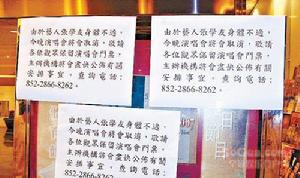 由於藝人張學友身體不適，
今晚演唱會將會取消，敬請
各位觀眾保留演唱會門票，
主辦機構將會盡快公佈有關
安排事宜，查詢電話：
852-2866-8262。
由於藝人張學友身體不適，
今晚演唱會將會取消，敬請
各位觀眾保留演唱會門票，
主辦機構將會盡快公佈有關
安排事宜，查詢電話：
852-2866-8262。
由於藝人張學友身體不適，
今晚演唱會將會取消，敬請
各位觀眾保留演唱會門票，
主辦機構將會盡快公佈有關
安排事宜，查詢電話：
852-2866-8262。